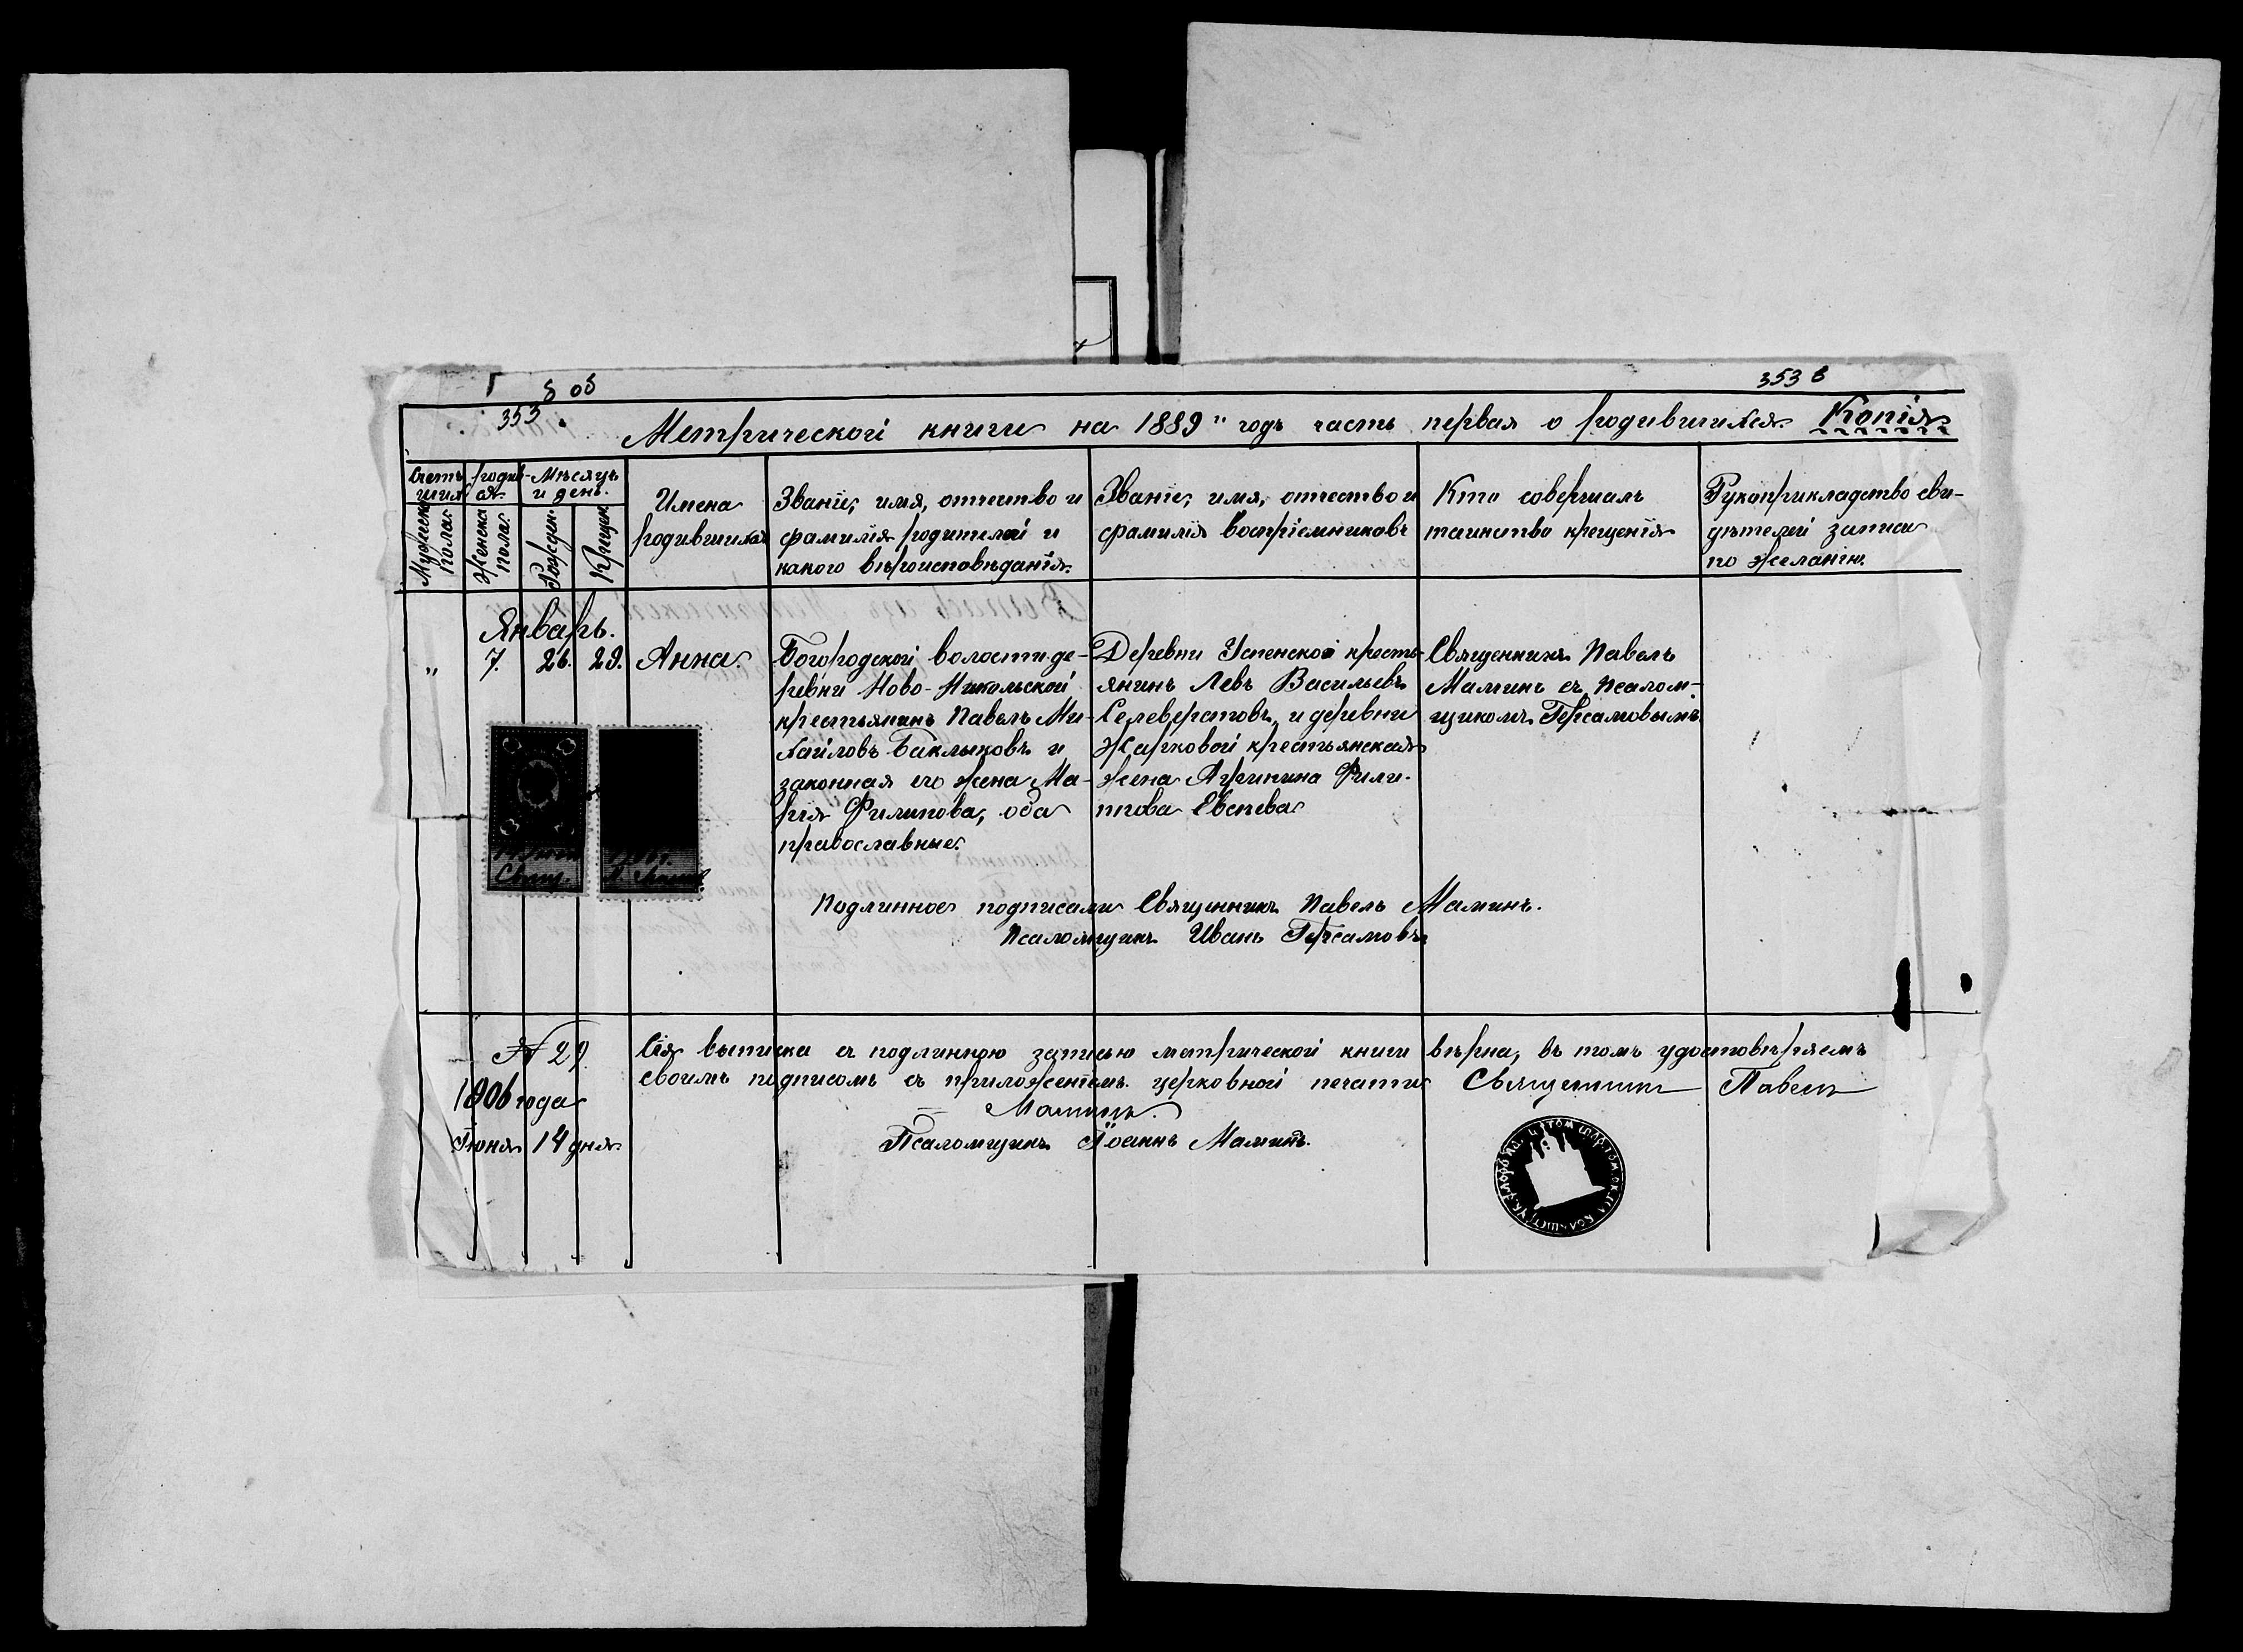 353 в
353
Метрической книги на 1889" годъ часть первая о родившихся. Копія
Счетъ родив-
шихся.
Мѣсяцъ
и день.
Мужеска
пола
Женска
пола
Рожден.
Крещен.
Имена
родившихся
Званіе, имя, отчество и
фамилія родителей и
какого вѣроисповѣданія.
Званіе, имя, отчество и
фамилія воспріемниковъ
Кто совершалъ
таинство крещенія
Рукоприкладство сви-
дѣтелей записи
по желанію.
Январь.
" 7. 26. 29. Анна.
Богородской волости де-
ревни Ново-Никольской
крестьянинъ Павелъ Ми-
хайловъ Баклыковъ и
законная его жена Ма-
рія Филипова, оба
православные.
Деревни Успенской кресть-
янинъ Левъ Васильевъ
Селеверстовъ, и деревни
Жарковой крестьянская
жена Агрипина Фили-
пова Евсиева
Священникъ Павелъ
Маминъ съ псалом-
щикомъ Герсамовымъ.
Свящ.
Подлинное подписали Священникъ Павелъ Маминъ.
Псаломщикъ Иванъ Герсамовъ
№ 29.
1906 года
Іюня 14 дня.
Сія выписка съ подлинною записью метрической книги вѣрна, въ томъ удостовѣряемъ
своимъ подписомъ съ приложеніемъ церковной печати Священникъ Павелъ
Маминъ.
Псаломщикъ Іоаннъ Маминъ.